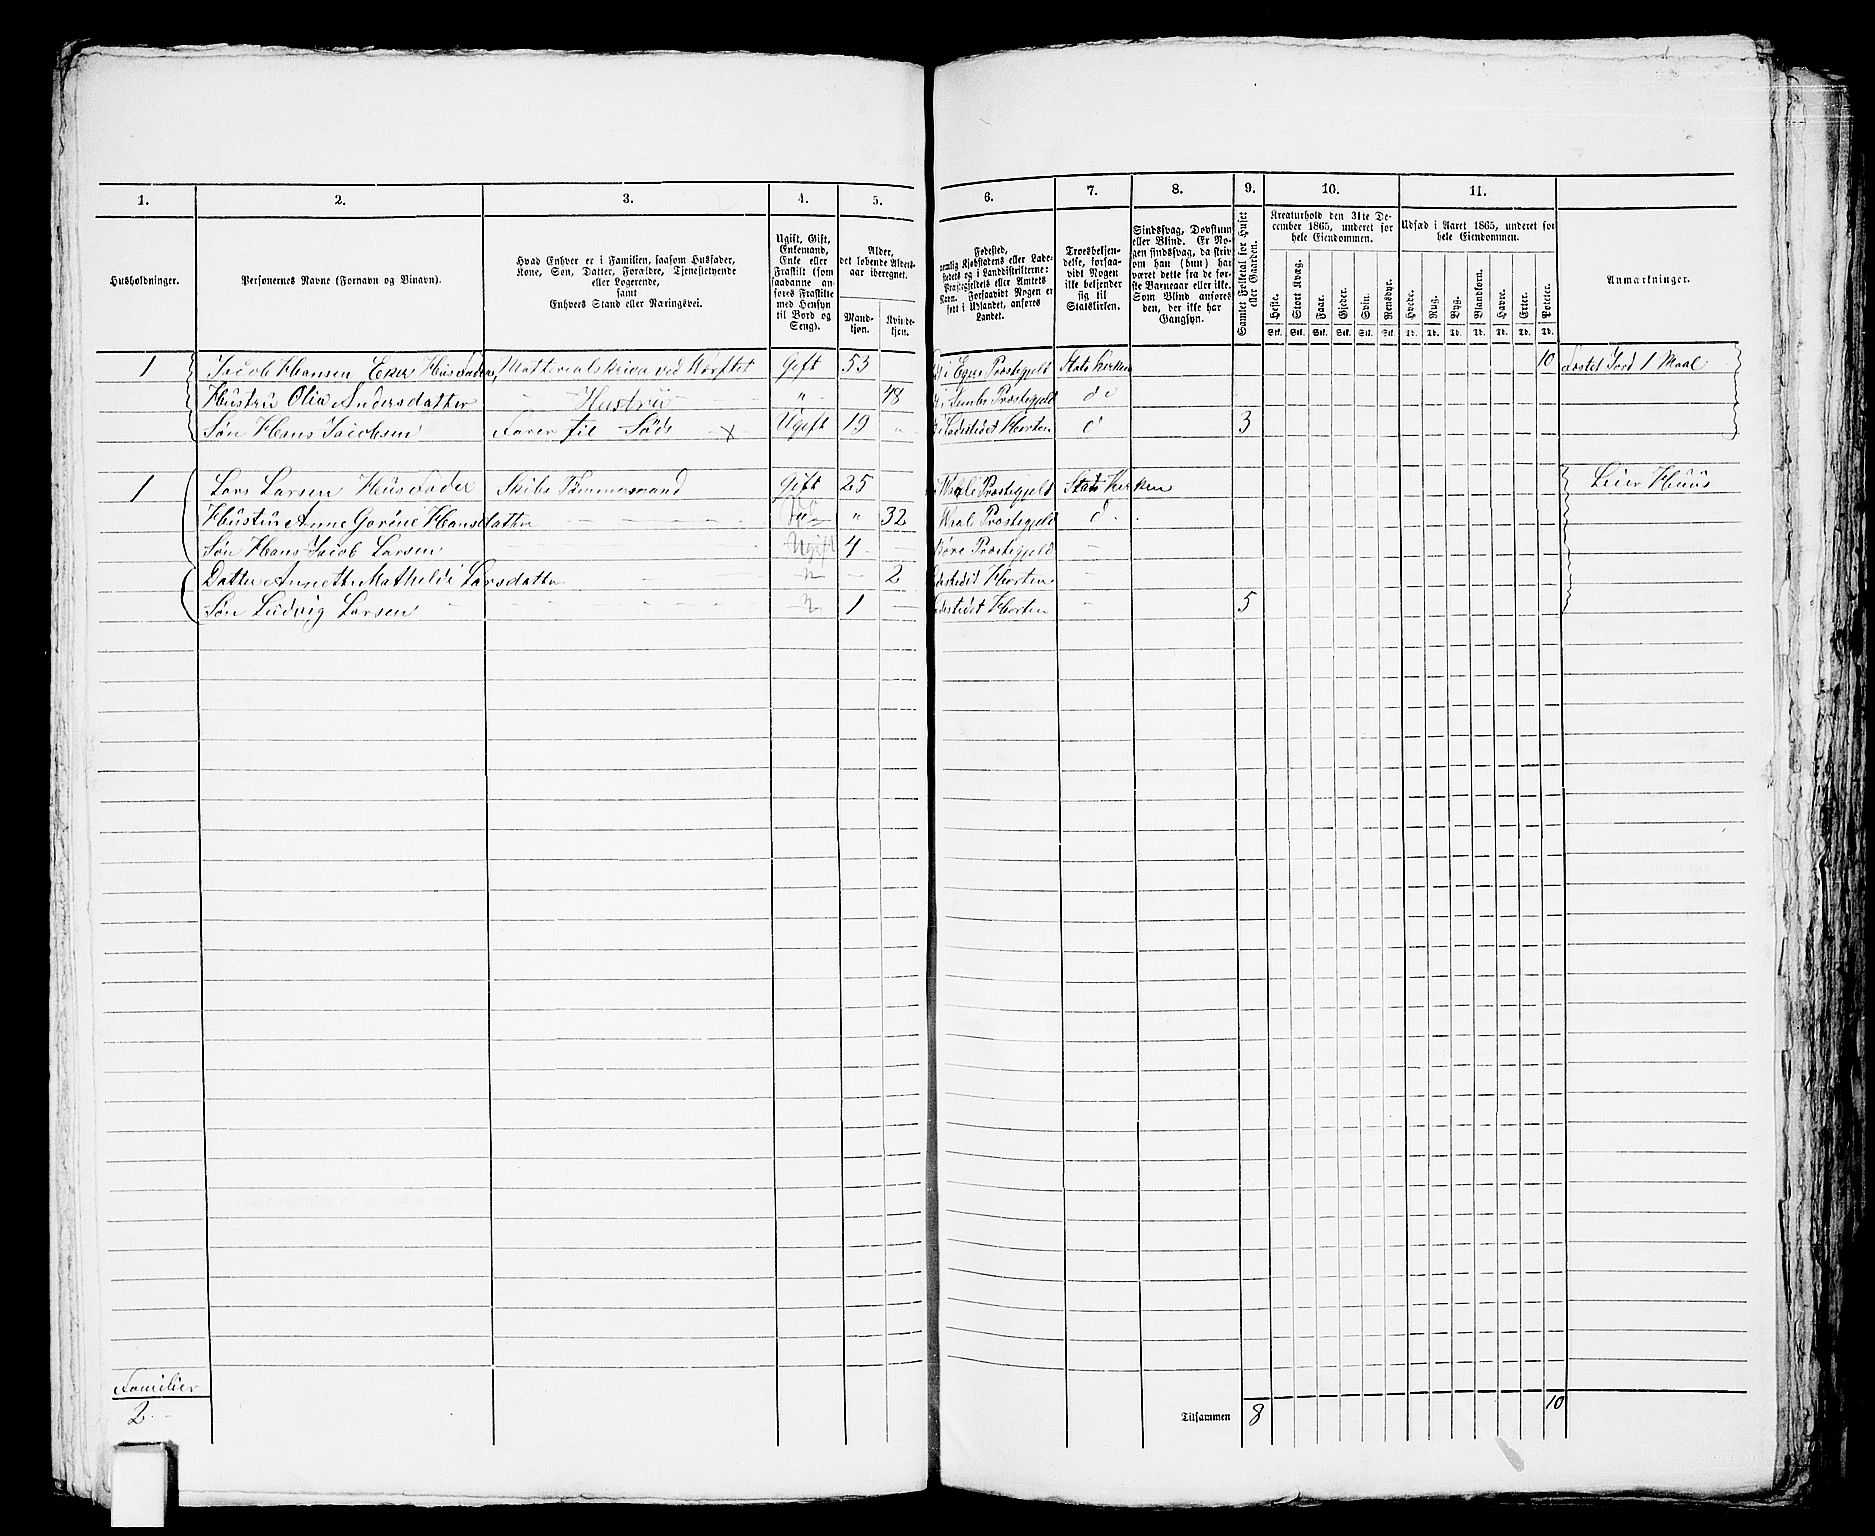 1. 2. 3. 4. 5. 6. 7. 8. 9. 10. 11.
Husholdninger.
Personernes Navne (Fornavn og Binavn).
Hvad Enhver er i Familien, saasom Husfader,
Kone, Søn, Datter, Forældre, Tjenestetyende
eller Logerende,
samt
Enhvers Stand eller Næringsvei.
Ugift, Gift,
Enkemand,
Enke eller
Fraskilt (som
saadanne an-
føres Fraskilte
med Hensyn
til Bord og
Seng).
Alder,
det løbende Alders-
aar iberegnet.
Mand-
kjøn.
Kvinde-
kjøn.
Fødested,
nemlig Kjøbstadens eller Lade-
stedets og i Landdistrikterne:
Præstegjeldets eller Amtets
Navn. Forsaavidt Nogen er
født i Udlandet, anføres
Landet.
Troesbekjen-
delse, forsaa-
vidt Nogen
ikke bekjender
sig til
Statskirken.
Sindssvag, Døvstum
eller Blind. Er No-
gen sindssvag, da skriv
om han (hun) har
været dette fra de før-
ste Barneaar eller ikke.
Som Blind anføres
den, der ikke har
Gangsyn.
Samlet Folketal for Huset
eller Gaarden.
Kreaturhold den 31te De-
cember 1865, underet for
hele Eiendommen.
Heste. Stort Kvæg. Faar. Gjeder. Svin. Rensdyr.
Stk. Stk. Stk. Stk. Stk. Stk.
Udsæd i Aaret 1865, underet for
hele Eiendommen.
Hvede. Rug. Byg. Blandkorn. Havre. Erter. Poteter.
Td. Td. Td. Td. Td. Td. Td.
Anmærkninger.
1 Jacob Hansen Eker Husfader, Matterialskriver ved Værftet Gift 53 i Egers Præstegjeld Stats Kirken 10 Jord 1 Maal
Hustru Olia Andersdatter Hustru " 48 Præstegjeld do
Søn Hans Jacobsen Farer til Søds x Ugift 19 " Ladestedet Horten d 3
1 Lars Larsen Husfader Skibs Tømmermand Gift 25 Præstegjeld Stats Kirken Leier Huus
Hustru Anne Hansdatter " 32 Præstegjeld d
Søn Hans Jacob Larsen Ugift 4 Præstegjeld
Datter Annette Mathilde Larsdatter 2 Ladestedet Horten
Søn Ludvig Larsen 1 Ladestedet Horten 5
Familier
2
Tilsammen 8 10